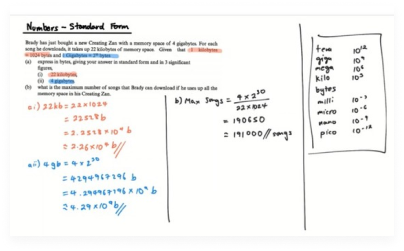 Numbers - Standard Form
Brady has just bought a new Creating Zen with a memory space of 4 gigabytes. For each
song he downloads, it takes up 22 kilobytes of memory space. Given that 1 kilobytes
= 1024 bytes and 1 Gigabytes = 2³⁰ bytes.
(a) express in bytes, giving your answer in standard form and in 3 significant
figures,
(i) 22 kilobytes,
(ii) 4 gigabytes,
(b) what is the maximum number of songs that Brady can download if he uses up all the
memory space in his Creating Zen.
a i) 22kb = 22 × 1024
= 22528 b
= 2.2528 × 10⁴ b
= 2.26 × 10⁴ b //
a ii) 4 gb = 4 × 2³⁰
= 4294967296 b
= 4.294967296 × 10⁹ b
= 4.29 × 10⁹ b //
b) Max songs = 4 × 2³⁰
22 × 1024
= 190650
= 191000 // songs
tera 10¹²
giga 10⁹
mega 10⁶
kilo 10³
bytes
milli 10⁻³
micro 10⁻⁶
nano 10⁻⁹
pico 10⁻¹²